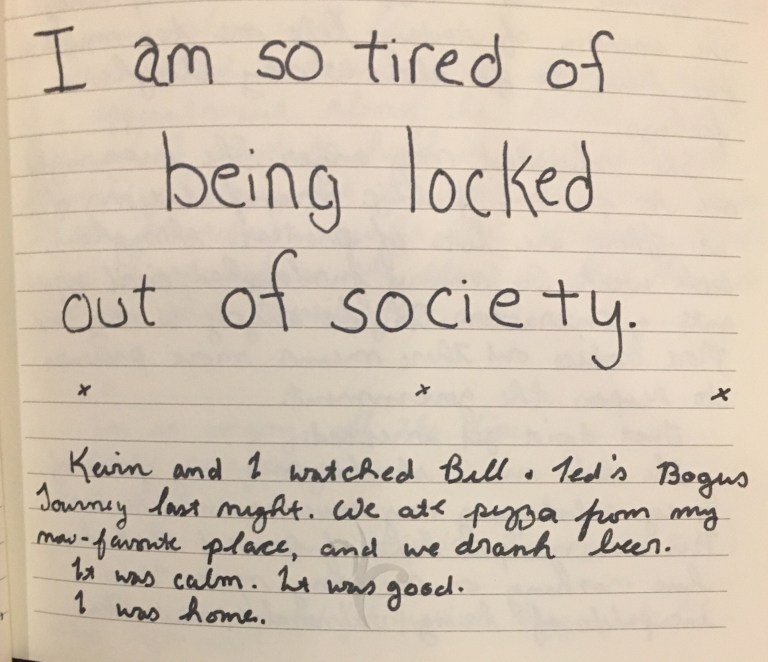 I am so tired of
being locked
out of society.
x x x
Kevin and I watched Bill & Ted's Bogus
Journey last night. We ate pizza from my
now-favorite place, and we drank beer.
It was calm. It was good.
I was home.